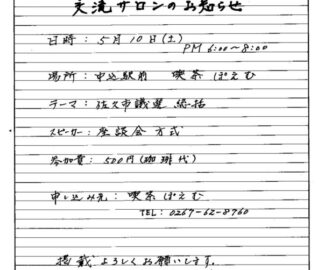 交流サロンのお知らせ
日時：5月10日(土)
PM 6:00～8:00
場所：中込駅前 喫茶 ぽえむ
テーマ：佐久市議選 総括
スピーカー：座談会 方式
参加費：500円(珈琲代)
申し込み先：喫茶 ぽえむ
TEL：0267-62-8760
掲載よろしくお願いします。